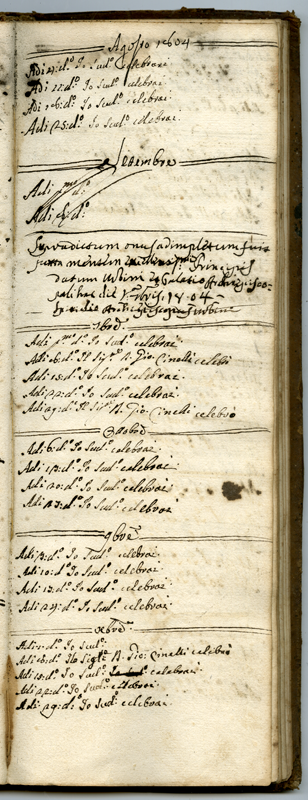 Agosto 1704
Adi 4: d.º Io sud.º celebrai
Adi 11: d.º Io sud.º celebrai
Adi 18: d.º Io sud.º celebrai
Adi 25: d.º Io sud.º celebrai
Settembre
Adi pmo d.º
Adi d.º
Supradictum onus adimpletum fuit
juxta mensem
datum
1704
7bre
Adi pmo d.º Io sud.º celebrai
Adi 8: d.º Il Sig.re D. Gio: Cinelli celebrò
Adi 15: d.º Io sud.º celebrai
Adi 22: d.º Io sud.º celebrai
Adi 29: d.º Il Sig.re D. Gio: Cinelli celebrò
Ottobre
Adi 6: d.º Io sud.º celebrai
Adi 13: d.º Io sud.º celebrai
Adi 20: d.º Io sud.º celebrai
Adi 27: d.º Io sud.º celebrai
9bre
Adi 3: d.º Io sud.º celebrai
Adi 10: d.º Io sud.º celebrai
Adi 17: d.º Io sud.º celebrai
Adi 24: d.º Io sud.º celebrai
Xbre
Adi 1: d.º Io sud.º
Adi 8: d.º Il Sig.re D. Gio: Cinelli celebrò
Adi 15: d.º Io sud.º celebrai
Adi 22: d.º Io sud.º celebrai
Adi 29: d.º Io sud.º celebrai